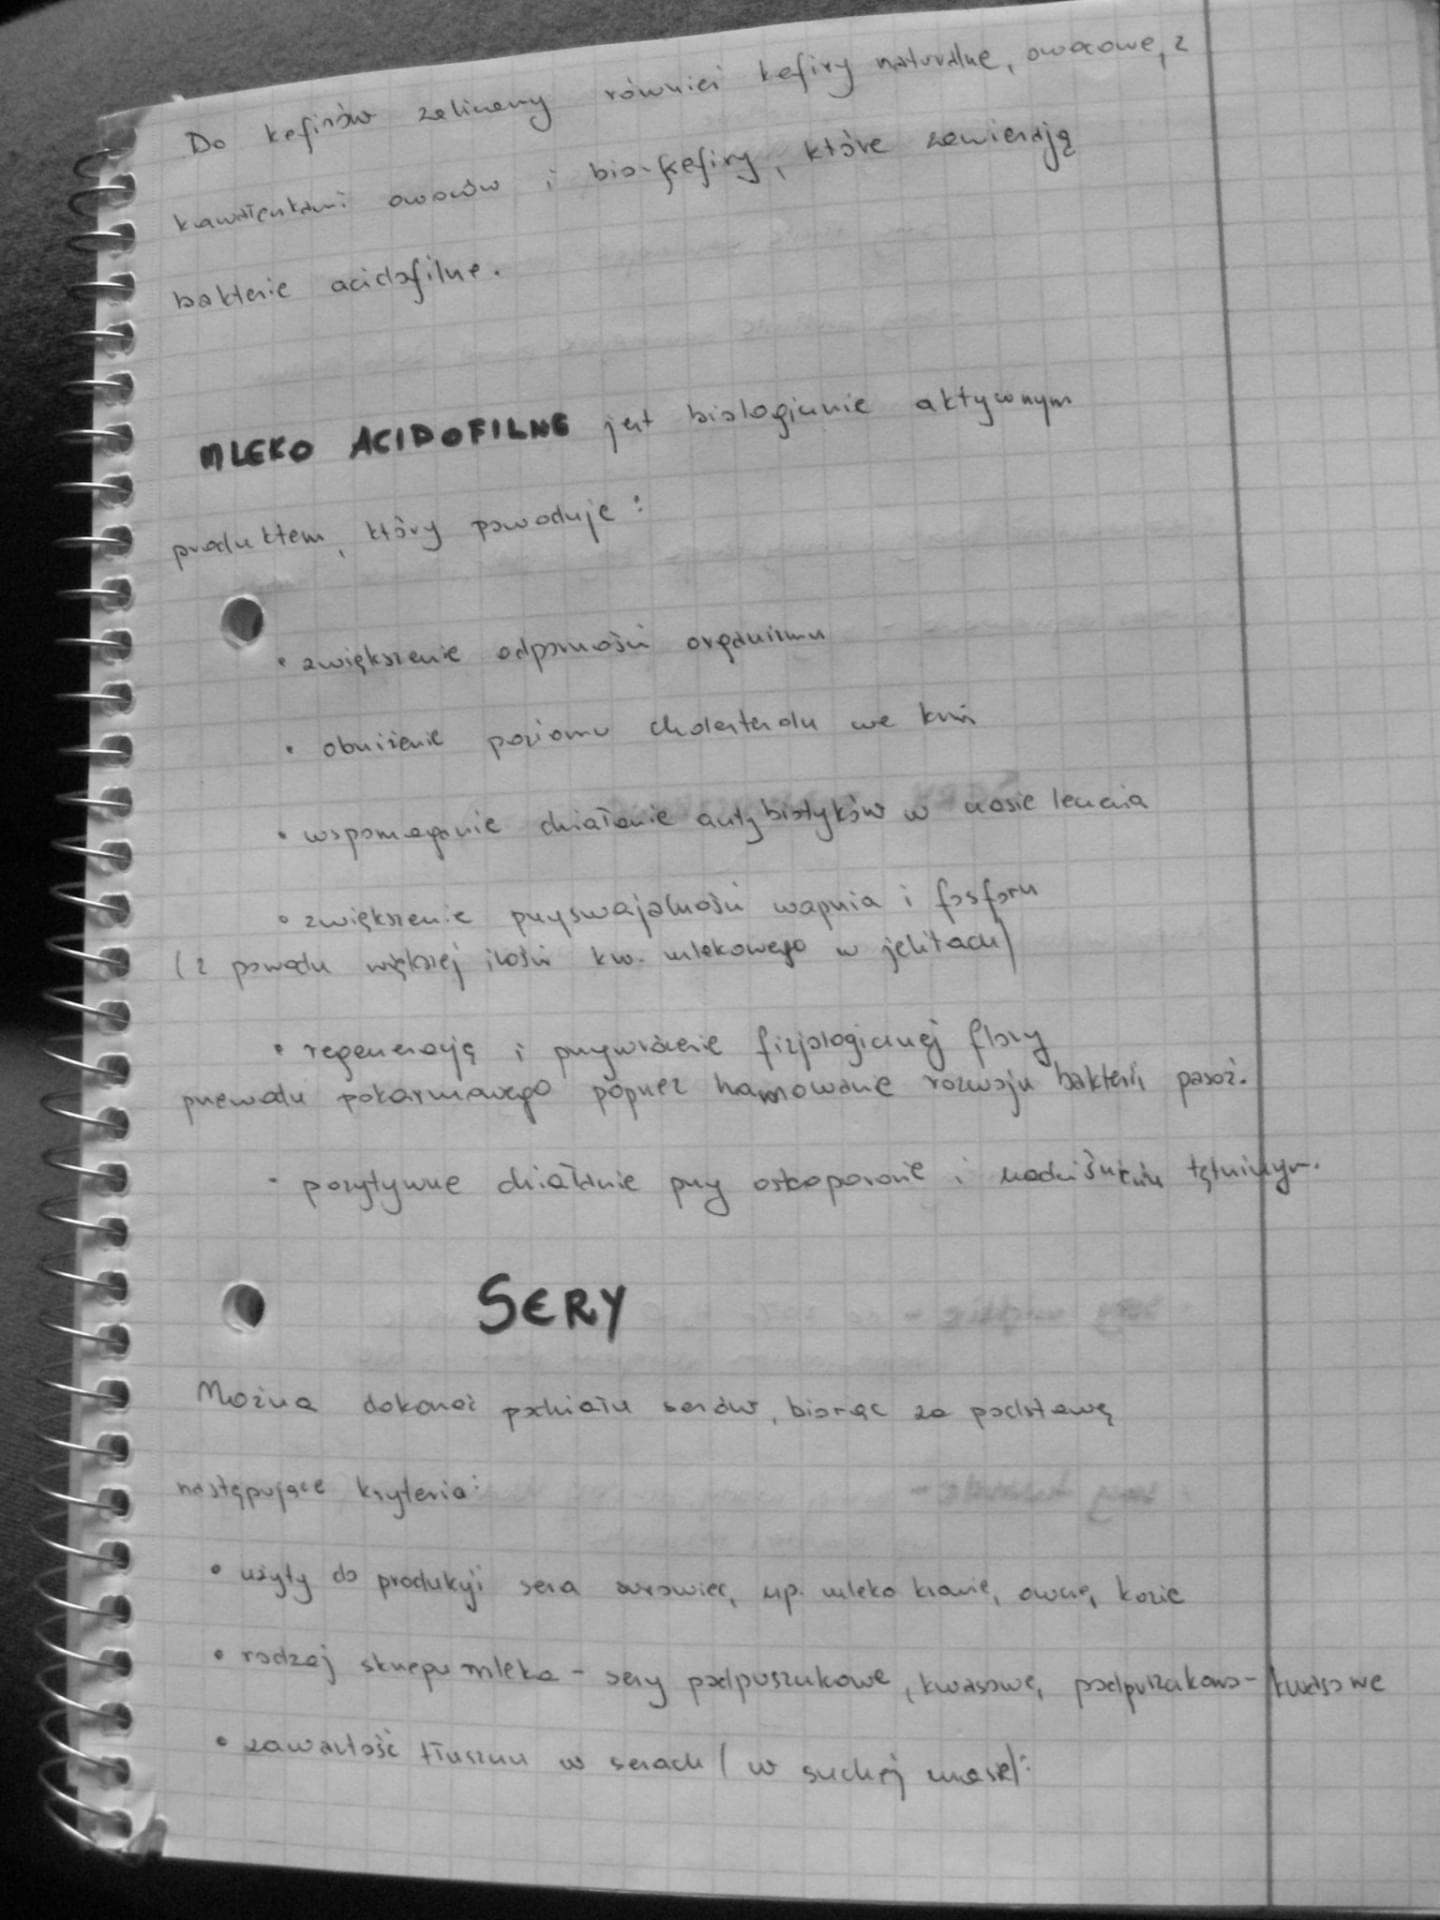 Do kefirów zaliczamy również kefiry naturalne, owocowe, z
kawałeczkami owoców i bio-kefiry, które zawierają
bakterie acidofilne.
MLEKO ACIDOFILNE jest biologicznie aktywnym
produktem, który powoduje:
• zwiększenie odporności organizmu
• obniżenie poziomu cholesterolu we krwi
• wspomaganie działanie antybiotyków w czasie leczenia
• zwiększenie przyswajalności wapnia i fosforu
(z powodu większej ilości kw. mlekowego w jelitach)
• regenerację i przywrócenie fizjologicznej flory
przewodu pokarmowego poprzez hamowanie rozwoju bakterii pasoż.
• pozytywne działanie przy osteoporozie i nadciśnieniu tętniczym.
SERY
Można dokonać podziału serów, biorąc za podstawę
następujące kryteria:
• użyty do produkcji sera surowiec, np. mleko krowie, owcze, kozie
• rodzaj skrzepu mleka - sery podpuszczkowe, kwasowe, podpuszczkowo-kwasowe
• zawartość tłuszczu w serach (w suchej masie):